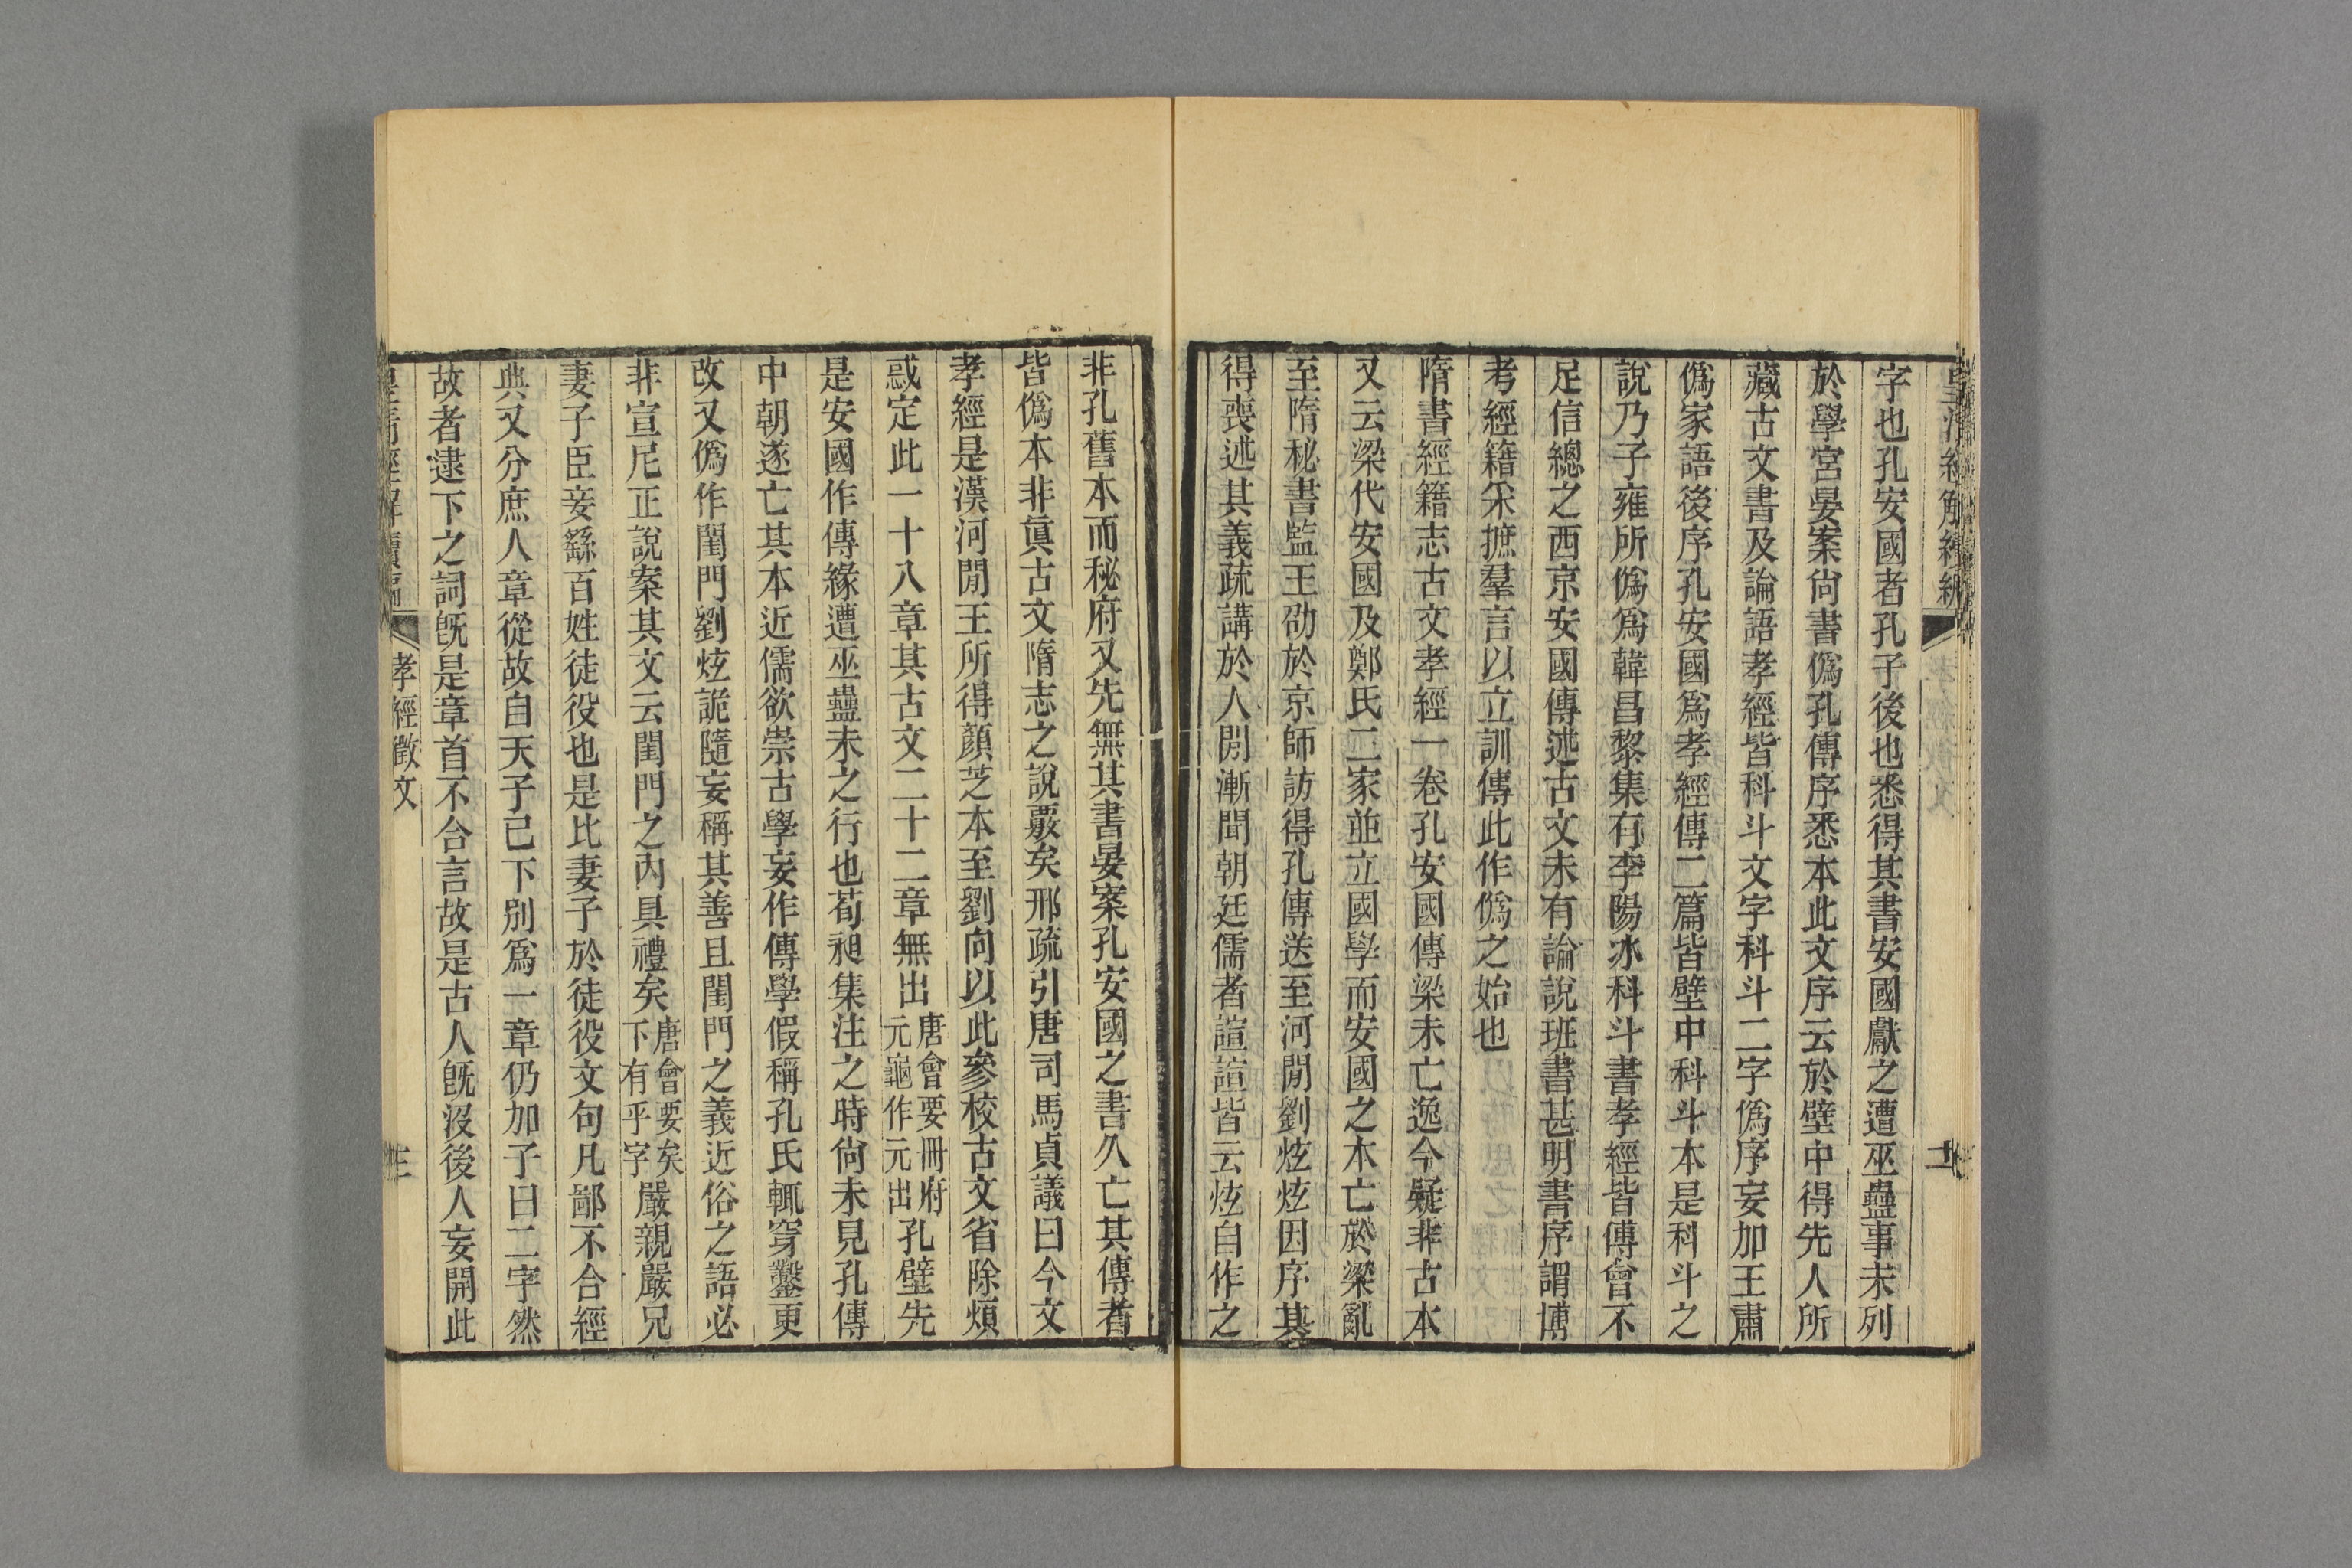 字也孔安國者孔子後也悉得其書安國獻之遭巫蠱事未列
於學宮晏案尙書僞孔傳序悉本此文序云於壁中得先人所
藏古文書及論語孝經皆科斗文字科斗二字僞序妄加王肅
僞家語後序孔安國爲孝經傳二篇皆壁中科斗本是科斗之
說乃子雍所僞爲韓昌黎集有李陽冰科斗書孝經皆傅會不
足信總之西京安國傳述古文未有論說班書甚明書序謂博
考經籍采摭羣言以立訓傳此作僞之始也
隋書經籍志古文孝經一卷孔安國傳梁末亡逸今疑非古本
又云梁代安國及鄭氏二家並立國學而安國之本亡於梁亂
至隋秘書監王劭於京師訪得孔傳送至河閒劉炫炫因序其
得喪述其義疏講於人閒漸聞朝廷儒者諠諠皆云炫自作之
二
非孔舊本而秘府又先無其書晏案孔安國之書久亡其傳者
皆僞本非眞古文隋志之說覈矣邢疏引唐司馬貞議曰今文
孝經是漢河閒王所得顏芝本至劉向以此參校古文省除煩
惑定此一十八章其古文二十二章無出唐會要冊府元龜作元出孔壁先
是安國作傳緣遭巫蠱未之行也荀昶集注之時尙未見孔傳
中朝遂亡其本近儒欲崇古學妄作傳學假稱孔氏輒穿鑿更
改又僞作閨門劉炫詭隨妄稱其善且閨門之義近俗之語必
非宣尼正說案其文云閨門之內具禮矣唐會要矣下有乎字嚴親嚴兄
妻子臣妾繇百姓徒役也是比妻子於徒役文句凡鄙不合經
典又分庶人章從故自天子已下別爲一章仍加子曰二字然
故者逮下之詞旣是章首不合言故是古人旣沒後人妄開此
孝經徵文
三